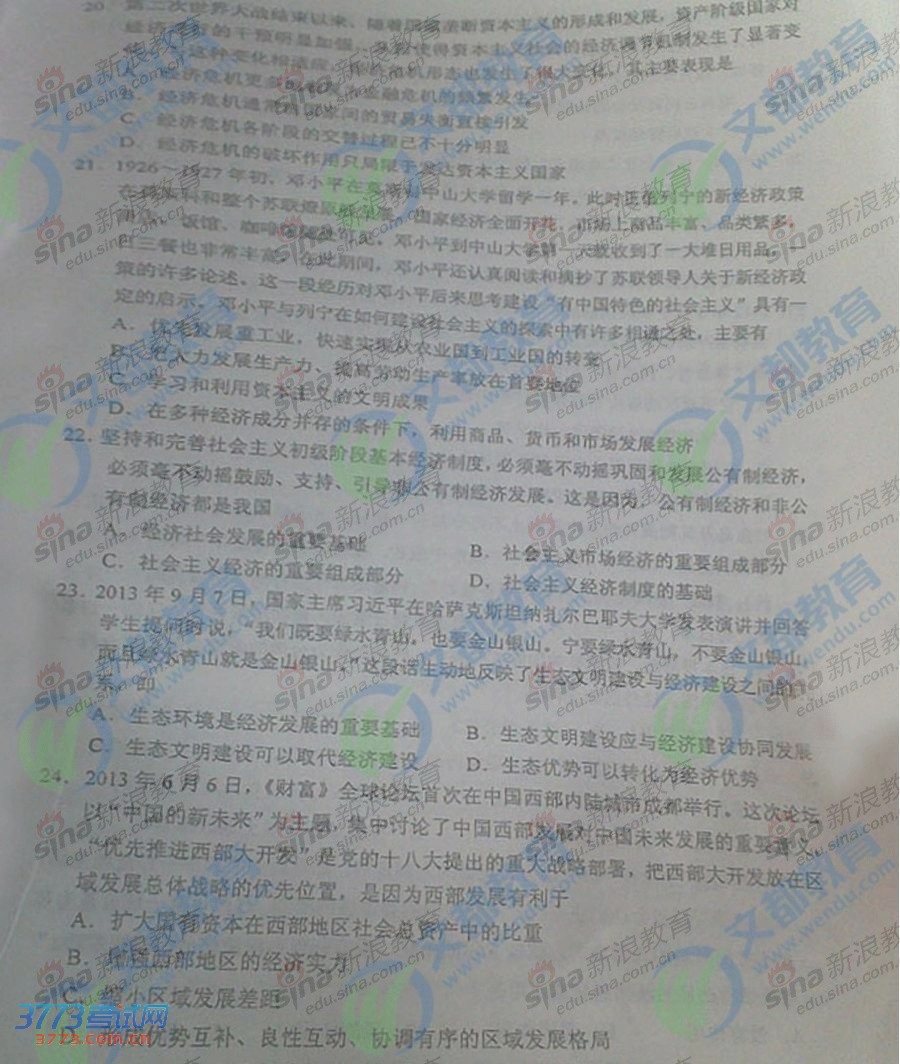 20. 第二次世界大战结束以来，随着国家垄断资本主义的形成和发展，资产阶级国家对
经济的干预明显加强，从而使得资本主义社会的经济调节机制发生了显著变
这种变化相适应，经济危机形态也发生了很大变化，其主要表现是
经济危机更多 金融危机的频繁发生
B. 经济危机通常 国家间的贸易失衡直接引发
C. 经济危机各阶段的交替过程已不十分明显
D. 经济危机的破坏作用只局限于发达资本主义国家
21. 1926—1927年初，邓小平在莫斯科中山大学留学一年。此时正在列宁的新经济政策
在莫斯科和整个苏联 国家经济全面开花，市场上商品丰富、品类繁多，
商店、饭馆、咖啡 随处可见。邓小平到中山大学第一天就收到了一大堆日用品，一
日三餐也非常丰富。在此期间，邓小平还认真阅读和摘抄了苏联领导人关于新经济政
策的许多论述。这一段经历对邓小平后来思考建设“有中国特色的社会主义”具有一
定的启示，邓小平与列宁在如何建设社会主义的探索中有许多相通之处，主要有
A. 优先发展重工业，快速实现从农业国到工业国的转变
B. 把大力发展生产力、提高劳动生产率放在首要地位
C. 学习和利用资本主义的文明成果
D. 在多种经济成分并存的条件下，利用商品、货币和市场发展经济
22. 坚持和完善社会主义初级阶段基本经济制度，必须毫不动摇巩固和发展公有制经济，
必须毫不动摇鼓励、支持、引导非公有制经济发展。这是因为，公有制经济和非公
有制经济都是我国
A. 经济社会发展的重要基础
B. 社会主义市场经济的重要组成部分
C. 社会主义经济的重要组成部分
D. 社会主义经济制度的基础
23. 2013年9月7日，国家主席习近平在哈萨克斯坦纳扎尔巴耶夫大学发表演讲并回答
学生提问时说，“我们既要绿水青山，也要金山银山。宁要绿水青山，不要金山银山，
而且绿水青山就是金山银山。”这段话生动地反映了生态文明建设与经济建设之间的
系。即
A. 生态环境是经济发展的重要基础
B. 生态文明建设应与经济建设协同发展
C. 生态文明建设可以取代经济建设
D. 生态优势可以转化为经济优势
24. 2013年6月6日，《财富》全球论坛首次在中国西部内陆城市成都举行。这次论坛
以“中国的新未来”为主题，集中讨论了中国西部发展对中国未来发展的重要意义。
“优先推进西部大开发”是党的十八大提出的重大战略部署，把西部大开发放在区
域发展总体战略的优先位置，是因为西部发展有利于
A. 扩大国有资本在西部地区社会总资产中的比重
B. 增强西部地区的经济实力
C. 缩小区域发展差距
D. 形成优势互补、良性互动、协调有序的区域发展格局
sina新浪教育
edu.sina.com.cn
文都教育
www.wendu.com
3773考试网
3773.com.cn